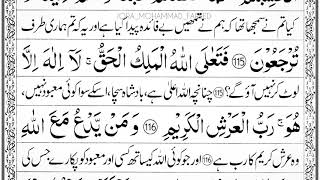 IQRA_MOHAMMAD_FARID
کیا تم نے سمجھا تھا کہ ہم نے تمہیں بے فائدہ پیدا کیا ہے اور یہ کہ تم ہماری طرف
تُرْجَعُوْنَ ﴿115﴾ فَتَعٰلَى اللّٰهُ الْمَلِكُ الْحَقُّ ۚ لَآ اِلٰهَ اِلَّا
لوٹ کر نہیں آؤ گے؟ ﴿115﴾ چنانچہ اللہ اعلیٰ ہے، بادشاہ سچا، اسکے سوا کوئی معبود نہیں،
هُوَ ۚ رَبُّ الْعَرْشِ الْكَرِيْمِ ﴿116﴾ وَمَنْ يَّدْعُ مَعَ اللّٰهِ
وہ عرش کریم کا رب ہے ﴿116﴾ اور جو کوئی اللہ کیساتھ کسی اور معبود کو پکارے جس کی